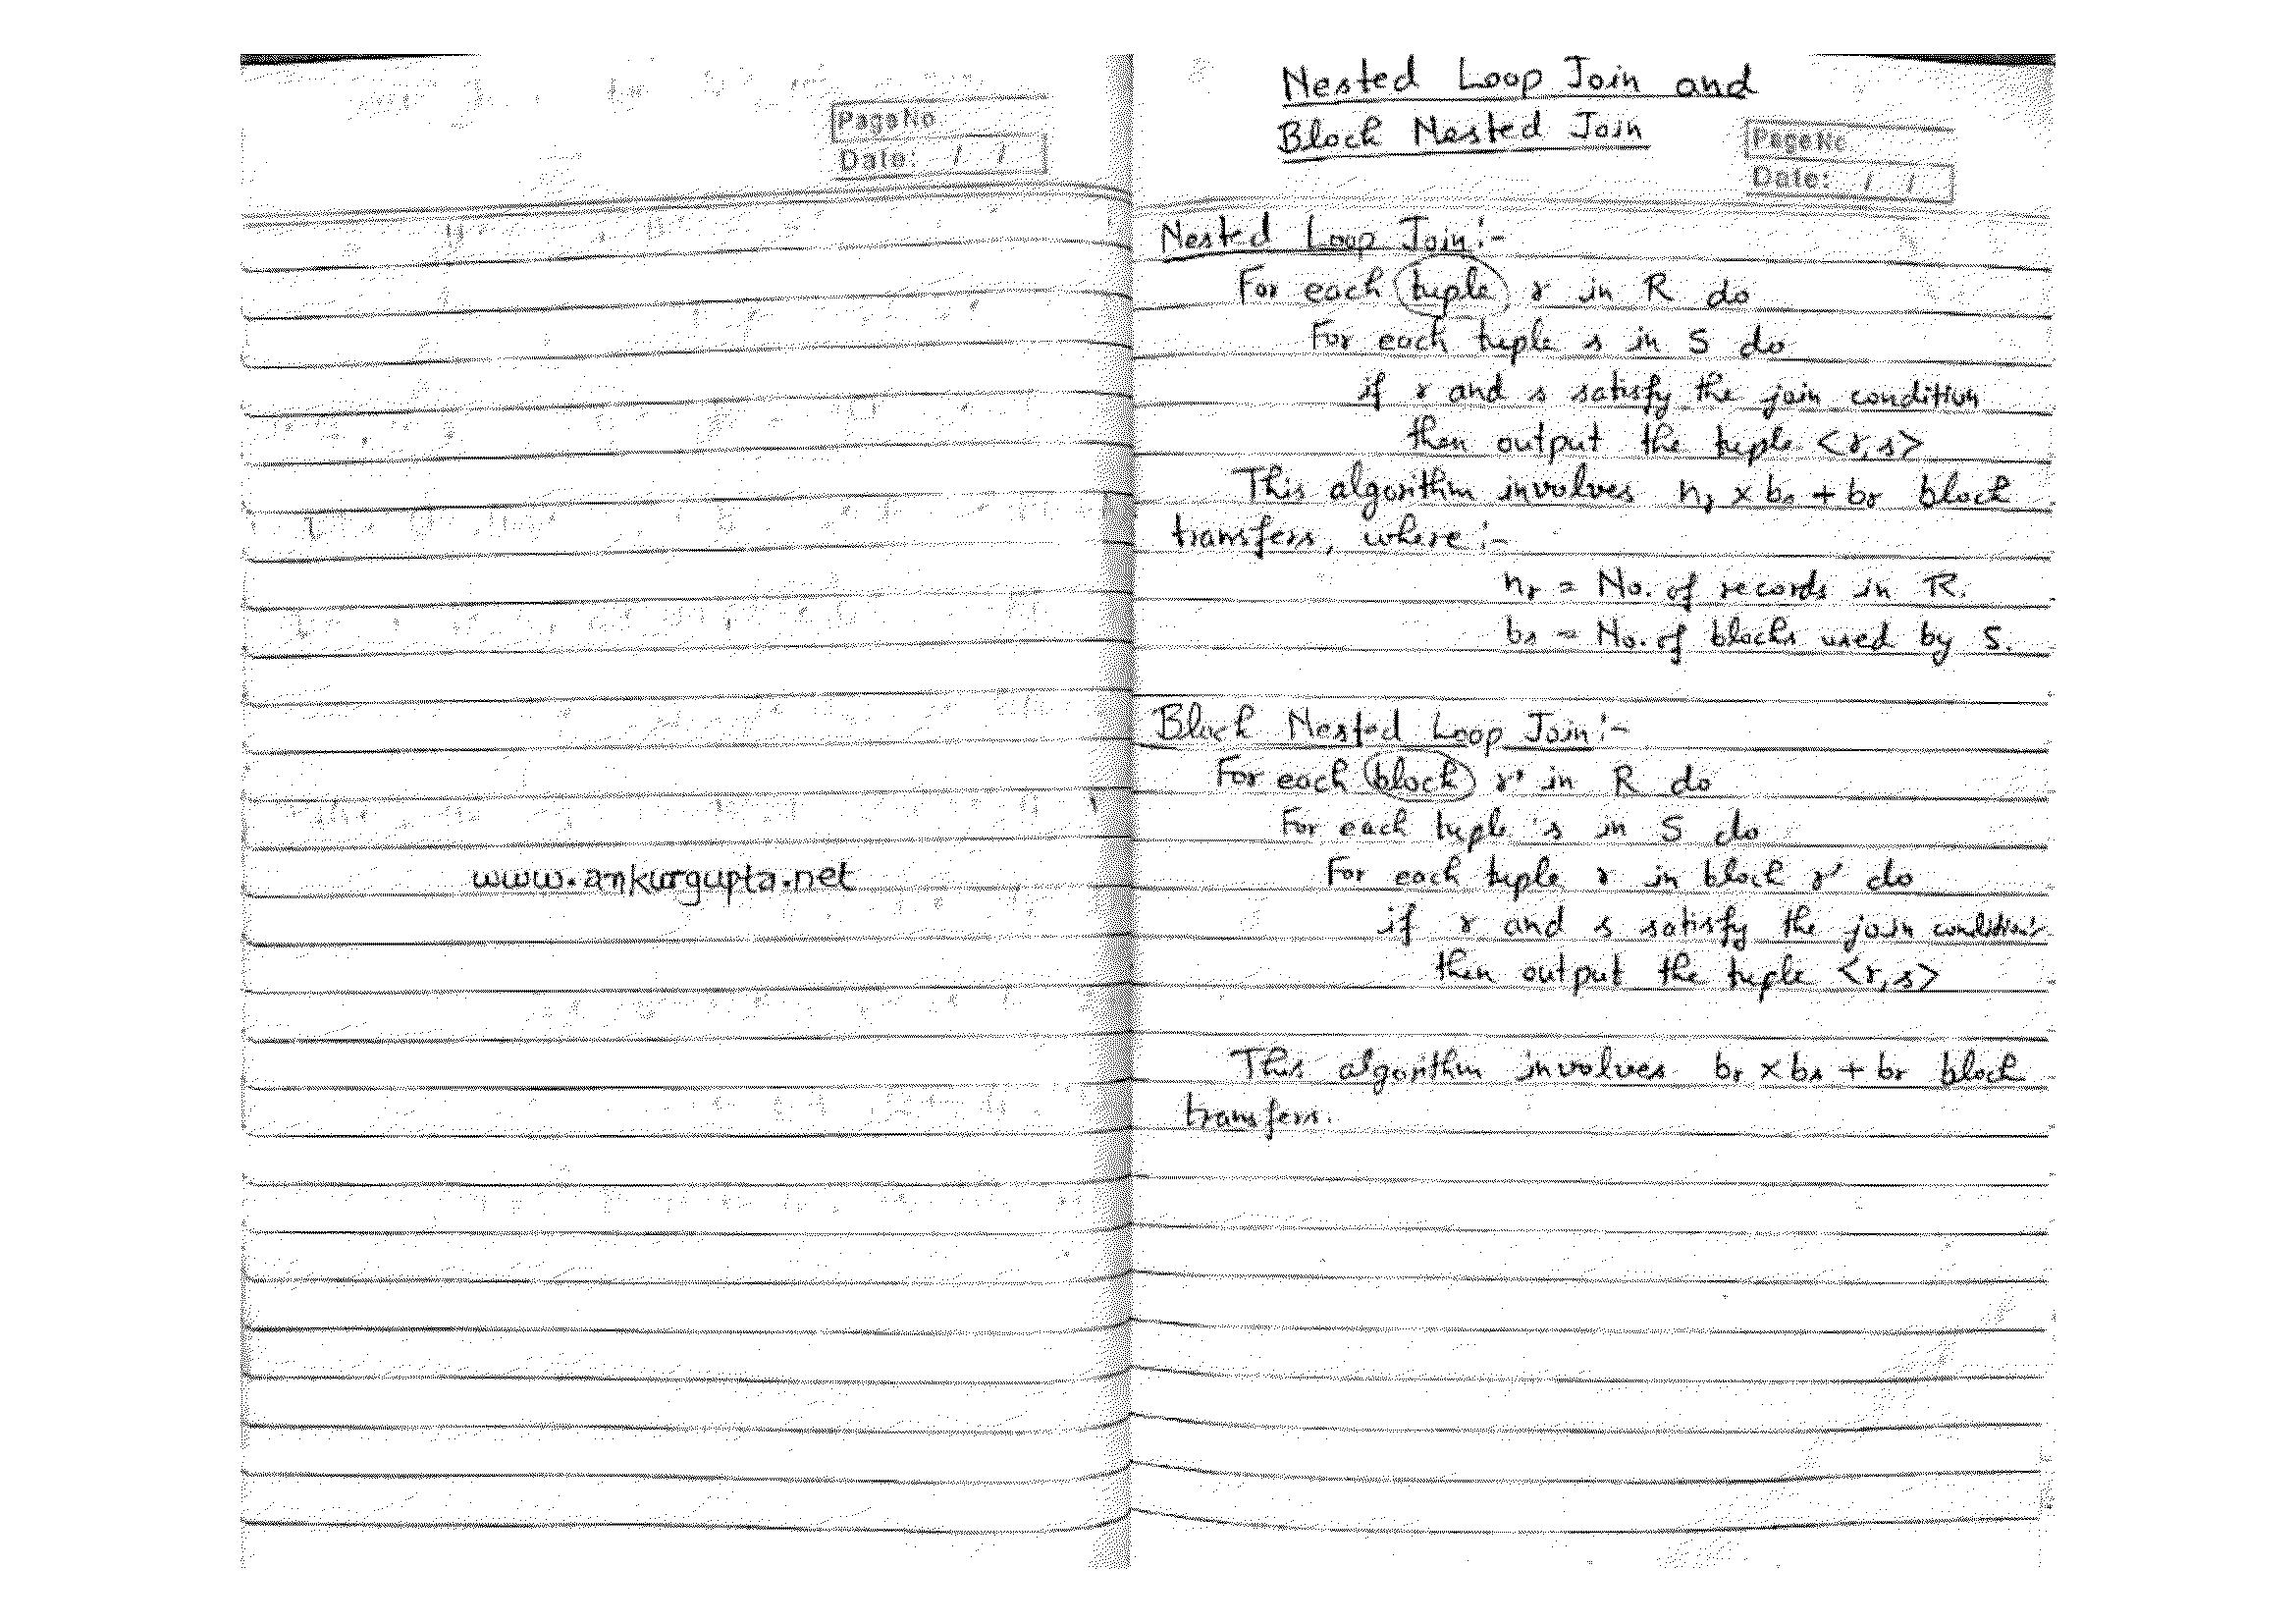 Page No.
Date: / /
www.ankurgupta.net
Nested Loop Join and
Block Nested Join
Page No.
Date: / /
Nested Loop Join:-
For each tuple r in R do
For each tuple s in S do
if r and s satisfy the join condition
then output the tuple <r,s>
This algorithm involves nr × bs + br block
transfers, where:-
nr = No. of records in R.
bs = No. of blocks used by S.
Block Nested Loop Join:-
For each block r' in R do
For each tuple s in S do
For each tuple r in block r' do
if r and s satisfy the join condition
then output the tuple <r,s>
This algorithm involves br × bs + br block
transfers.